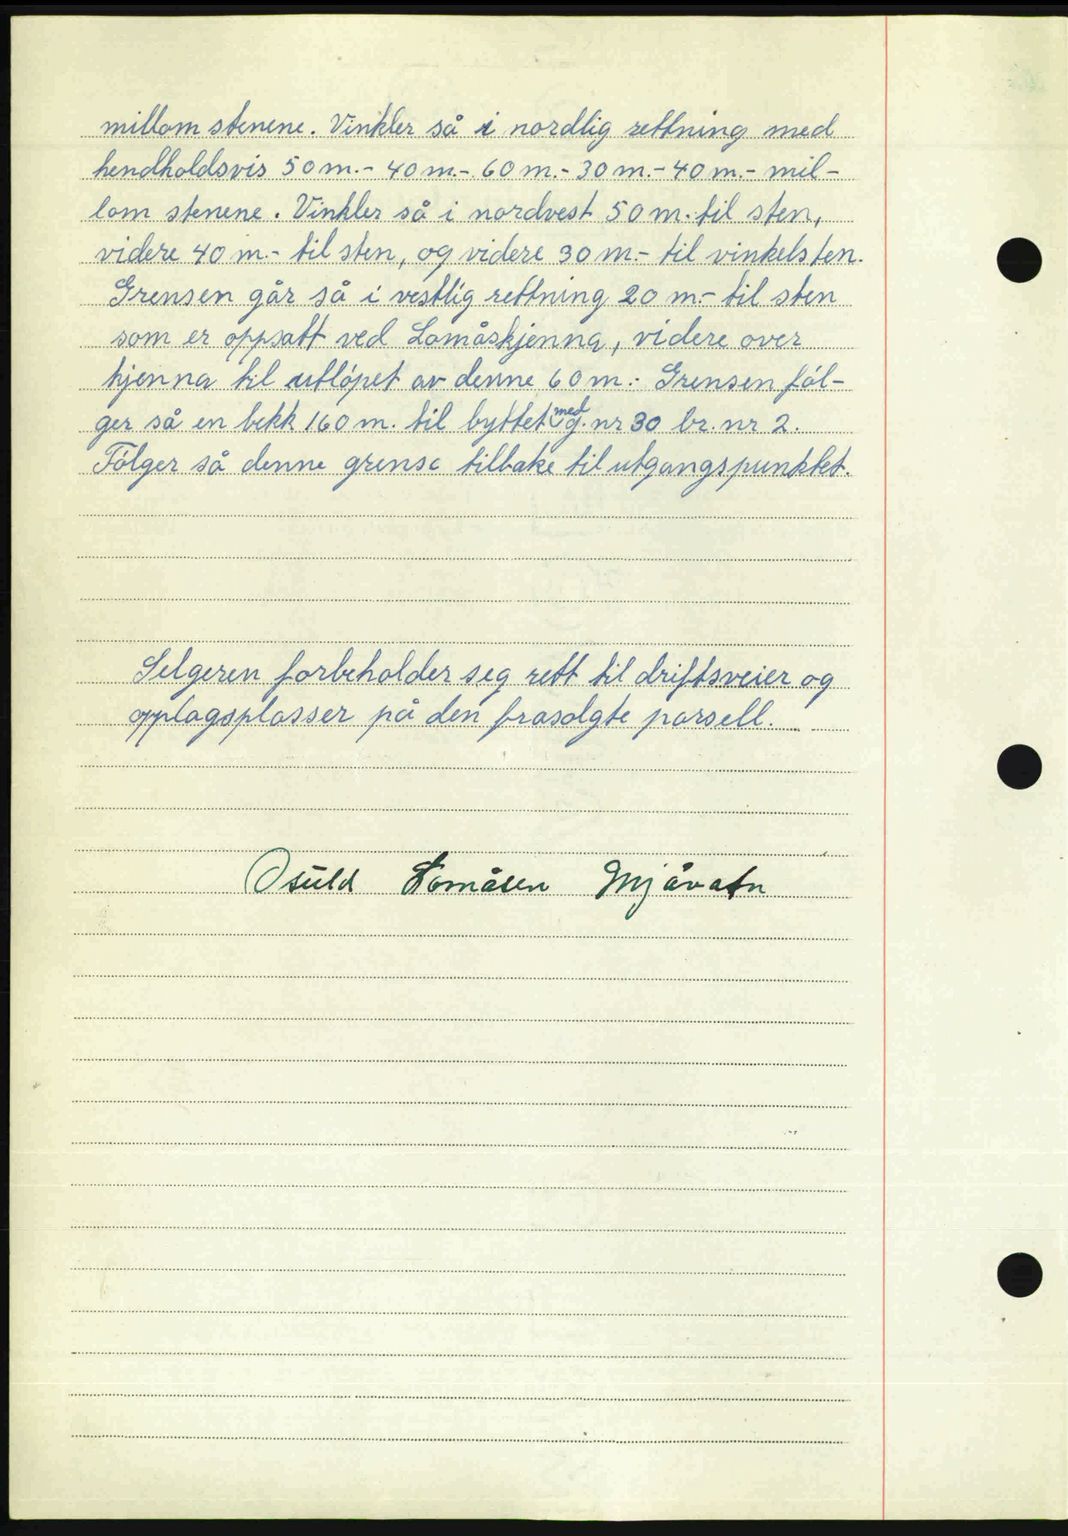 millom stenene. Vinkler så i nordlig rettning med
hendholdsvis 50 m.- 40 m.- 60 m.- 30 m.- 40 m.- mil-
lom stenene. Vinkler så i nordvest 50 m. til sten,
videre 40 m.- til sten, og videre 30 m.- til vinkelsten.
Grensen går så i vestlig rettning 20 m.- til sten
som er oppsatt ved Lomåskjenna, videre over
kjenna til utlöpet av denne 60 m.- Grensen föl-
ger så en bekk 160 m. til byttet med g. nr 30 br. nr 2.
Fölger så denne grense tilbake til utgangspunktet.
Selgeren forbeholder seg rett til driftsveier og
opplagsplasser på den frasolgte parsell.
Osuld Lomåsen Mjåvatn